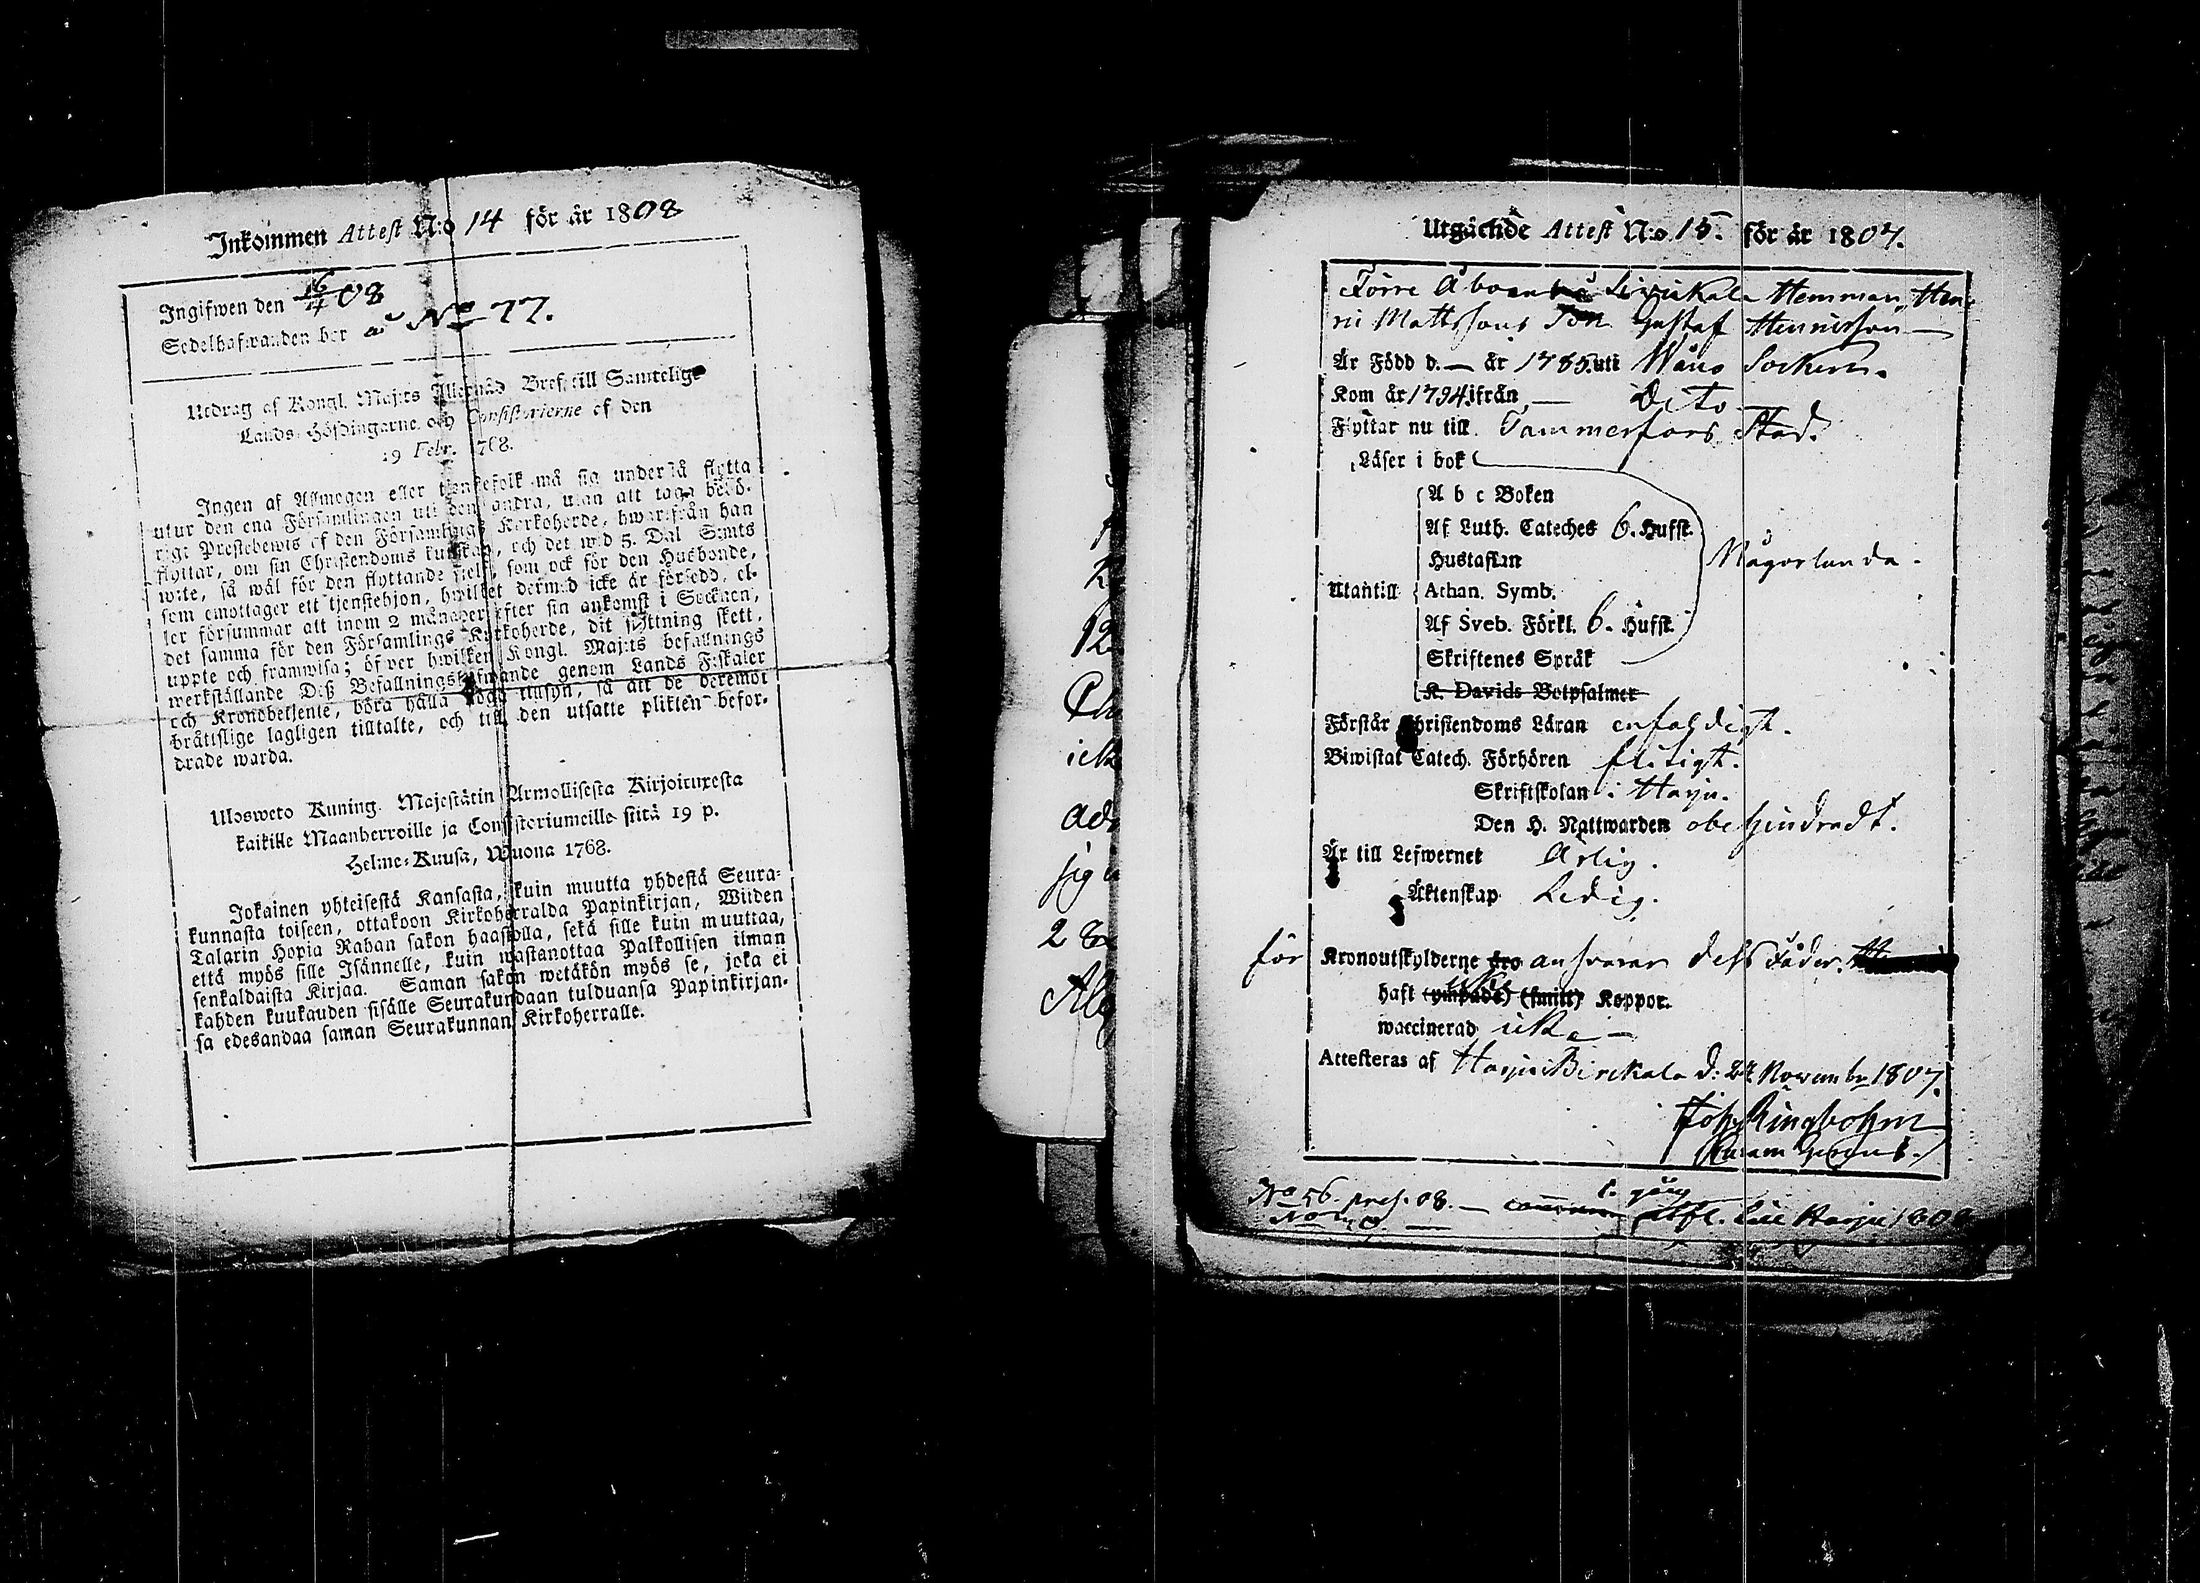 Inkommen Attest N:o 14 för år 1808
Ingifwen den 16/4 08
Sedelhafwanden bor å No 77.
Utdrag af Kongl. Maj:ts Allernåd. Bref till Samtelige
Lands-Höfdingarne och Consistorierne af den
19 Febr. 1768.
Ingen af Allmogen eller tjenstefolk må sig understå flytta
utur den ena Församlingen uti den andra, utan att taga behö-
rigt Prestebewis af den Församlings Kyrkoherde, hwarifrån han
flyttar, om sin Christendoms kunskap, och det wid 5. Dal. S:mts
wite, så wäl för den flyttande sielf, som ock för den Husbonde,
som emottager ett tjenstehjon, hwilket dermed icke är försedd, el-
ler försummar att inom 2 månader efter sin ankomst i Socknen,
det samma för den Församlings Kyrkoherde, dit flyttning skett,
uppte och framwisa; öfver hwilken Kongl. Maj:ts befallnings
werkställande Deß Befallningshafwande genom Lands Fiskaler
och Kronobetjente, böra hålla noga tillsyn, så att de deremot
bråttslige lagligen tilltalte, och till den utsatte plikten befor-
drade warda.
Ulosweto Kuning. Majestätin Armollisesta Kirjoituxesta
kaikille Maanherroille ja Consistoriumeille siitä 19 p.
Helme-Kuusa, Wuona 1768.
Jokainen yhteisestä Kansasta, kuin muutta yhdestä Seura-
kunnasta toiseen, ottakoon Kirkoherralda Papinkirjan, Wiiden
Talarin Hopia Rahan sakon haastolla, sekä sille kuin muuttaa,
että myös sille Isännelle, kuin wastanottaa Palkollisen ilman
senkaldaista Kirjaa. Saman sakon wetäkön myös se, joka ei
kahden kuukauden sisälle Seurakundaan tulduansa Papinkirjan-
sa edesandaa saman Seurakunnan Kirkoherralle.
Utgående Attest N:o 15. för år 1807.
Förre Åboen Hemman, Hen-
ric Mattssons Son Gustaf Henricsson —
Är Född d. — år 1785. uti Wåno Socken.
Kom år 1794. ifrån — Dito —
Flyttar nu till Tammerfors Stad.
Läser i bok
A b c Boken
Af Luth. Cateches 6. Hufst.
Hustaflan
Någorlunda.
Utantill Athan. Symb.
Af Sveb. Förkl. 6. Hufst.
Skriftenes Språk
K. Davids Botpsalmer
Förstår Christendoms Läran enfaldigt.
Biwistat Catech. Förhören flitigt.
Skriftskolan i Harju.
Den H. Nattwarden obehindradt.
Är till Lefwernet Ärlig.
Äktenskap Ledig.
för Kronoutskylderne ansvarar dess Fader.
haft (ympade) Koppor.
waccinerad icke —
Attesteras af Harju Birkala d: 27 November 1807.
Joh. Ringbohm
No 56. pres. 08. — 1. gång
Harju 1808